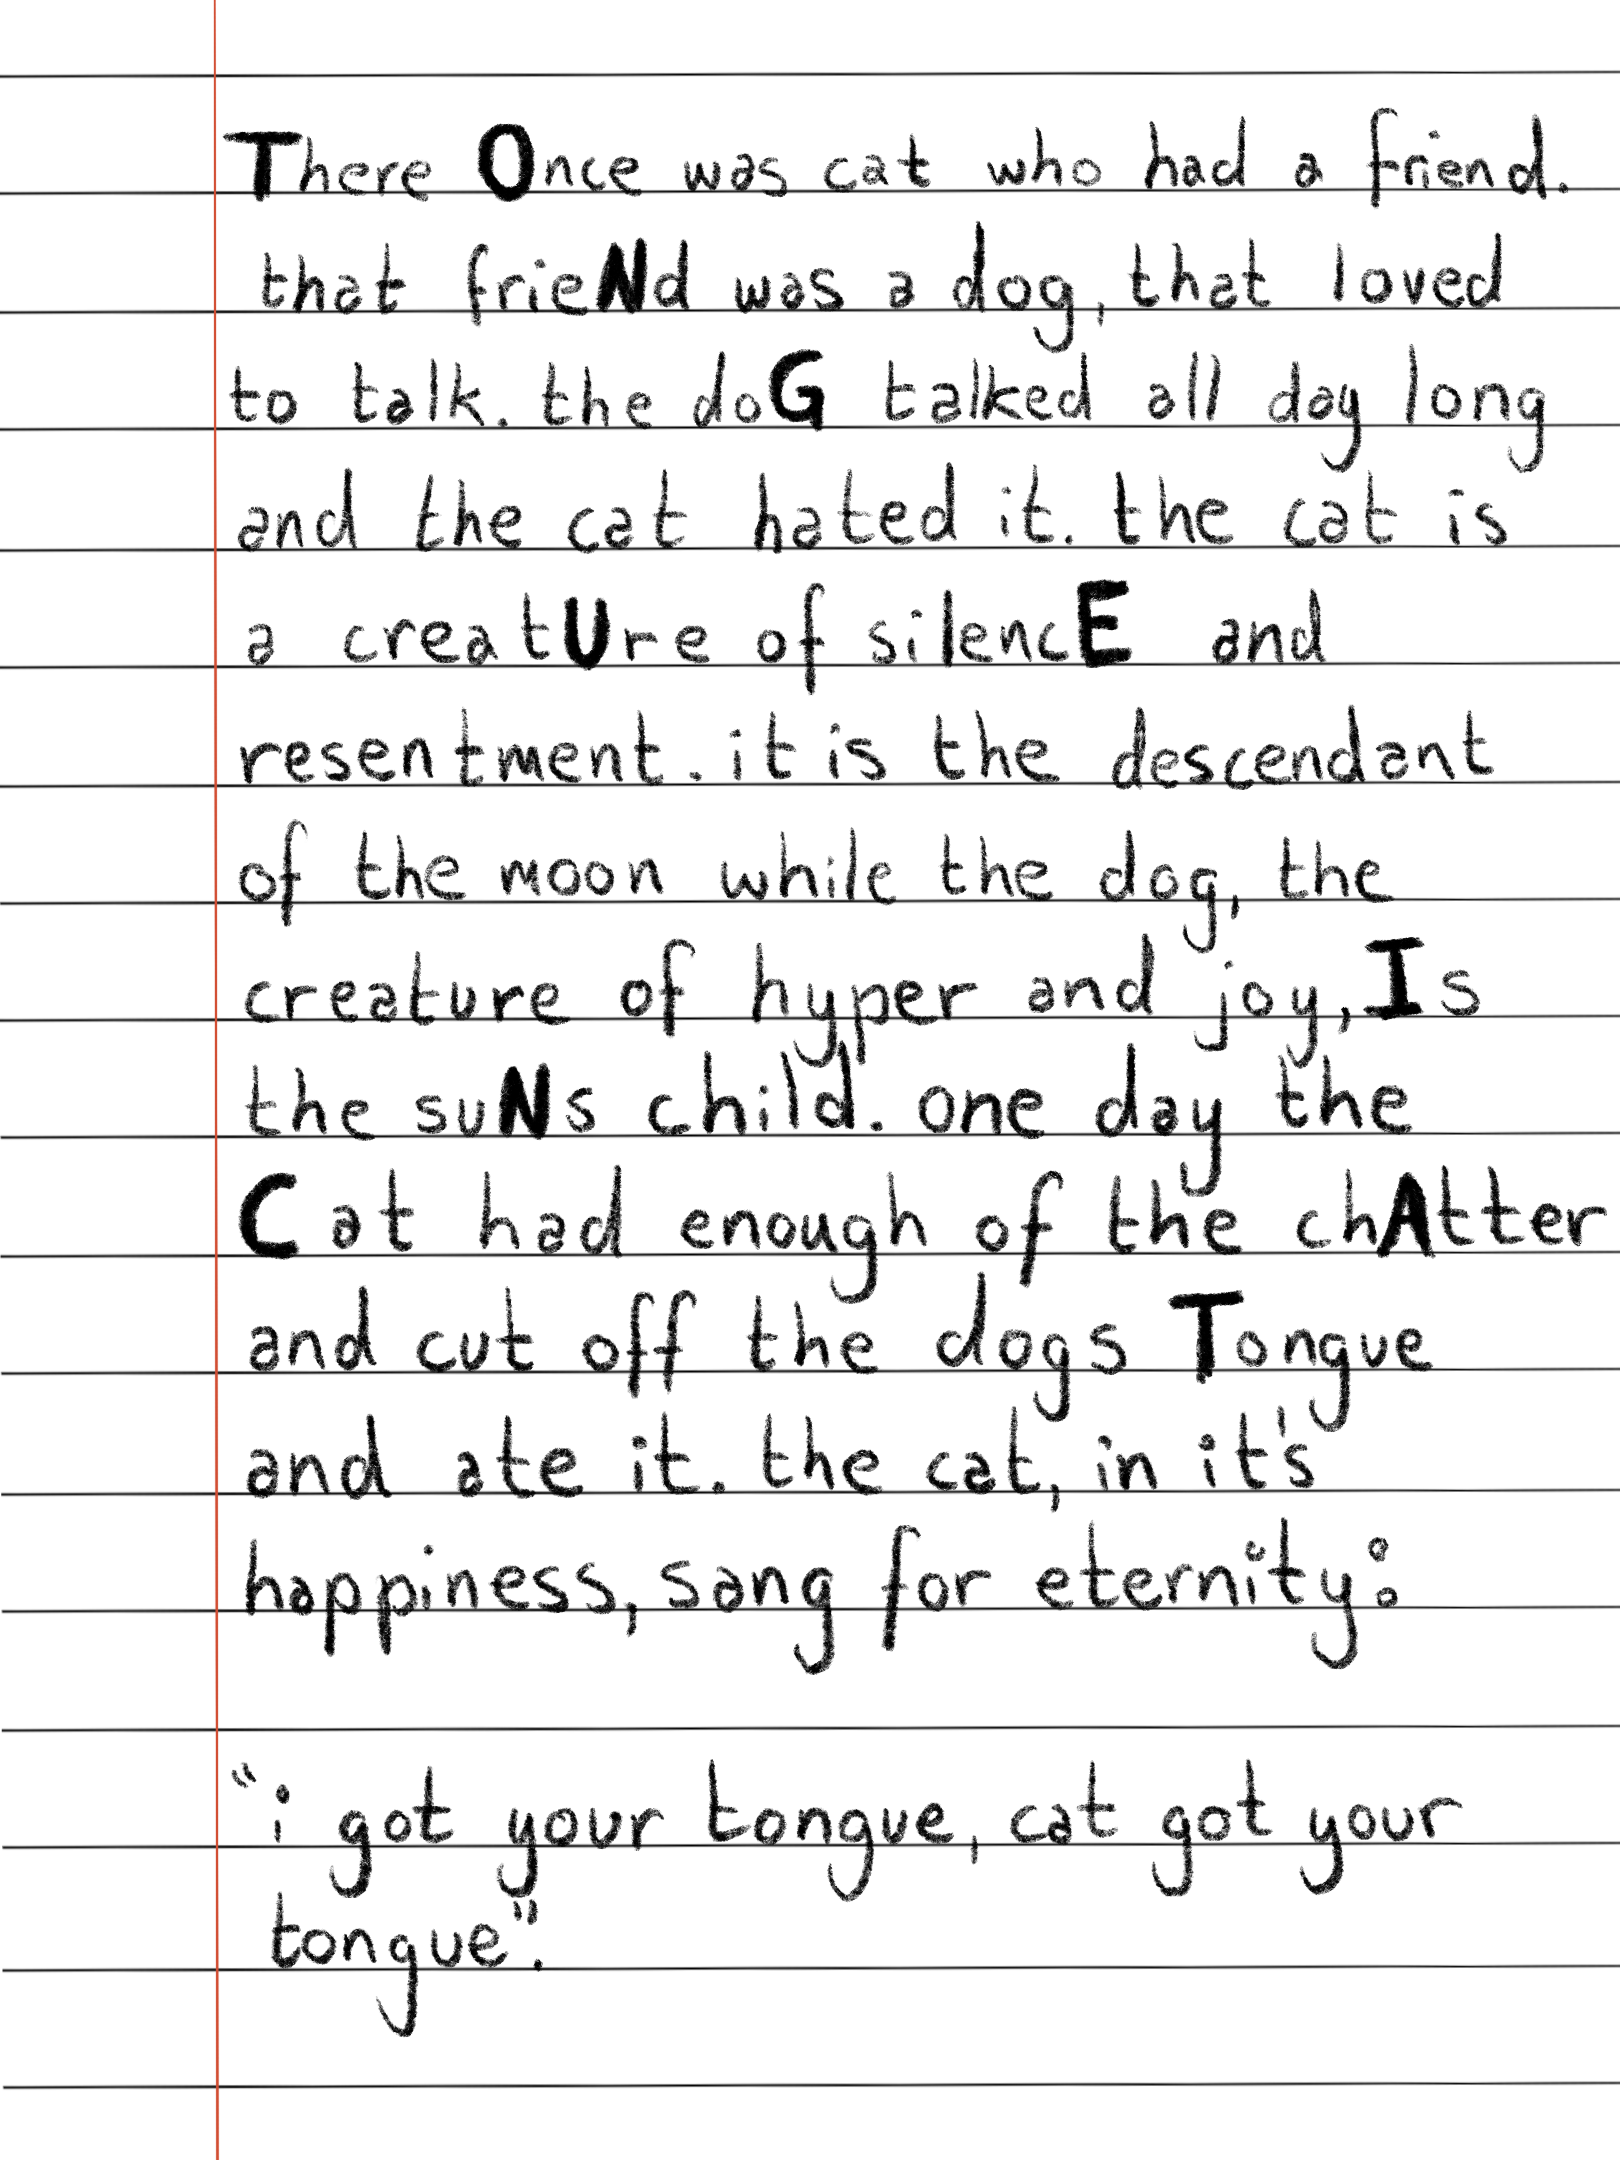 There Once was cat who had a friend.
that frieNd was a dog, that loved
to talk. the doG talked all day long
and the cat hated it. the cat is
a creatUre of silencE and
resentment. it is the descendant
of the moon while the dog, the
creature of hyper and joy, Is
the suNs child. one day the
Cat had enough of the chAtter
and cut off the dogs Tongue
and ate it. the cat, in it's
happiness, sang for eternity:
"i got your tongue, cat got your
tongue".